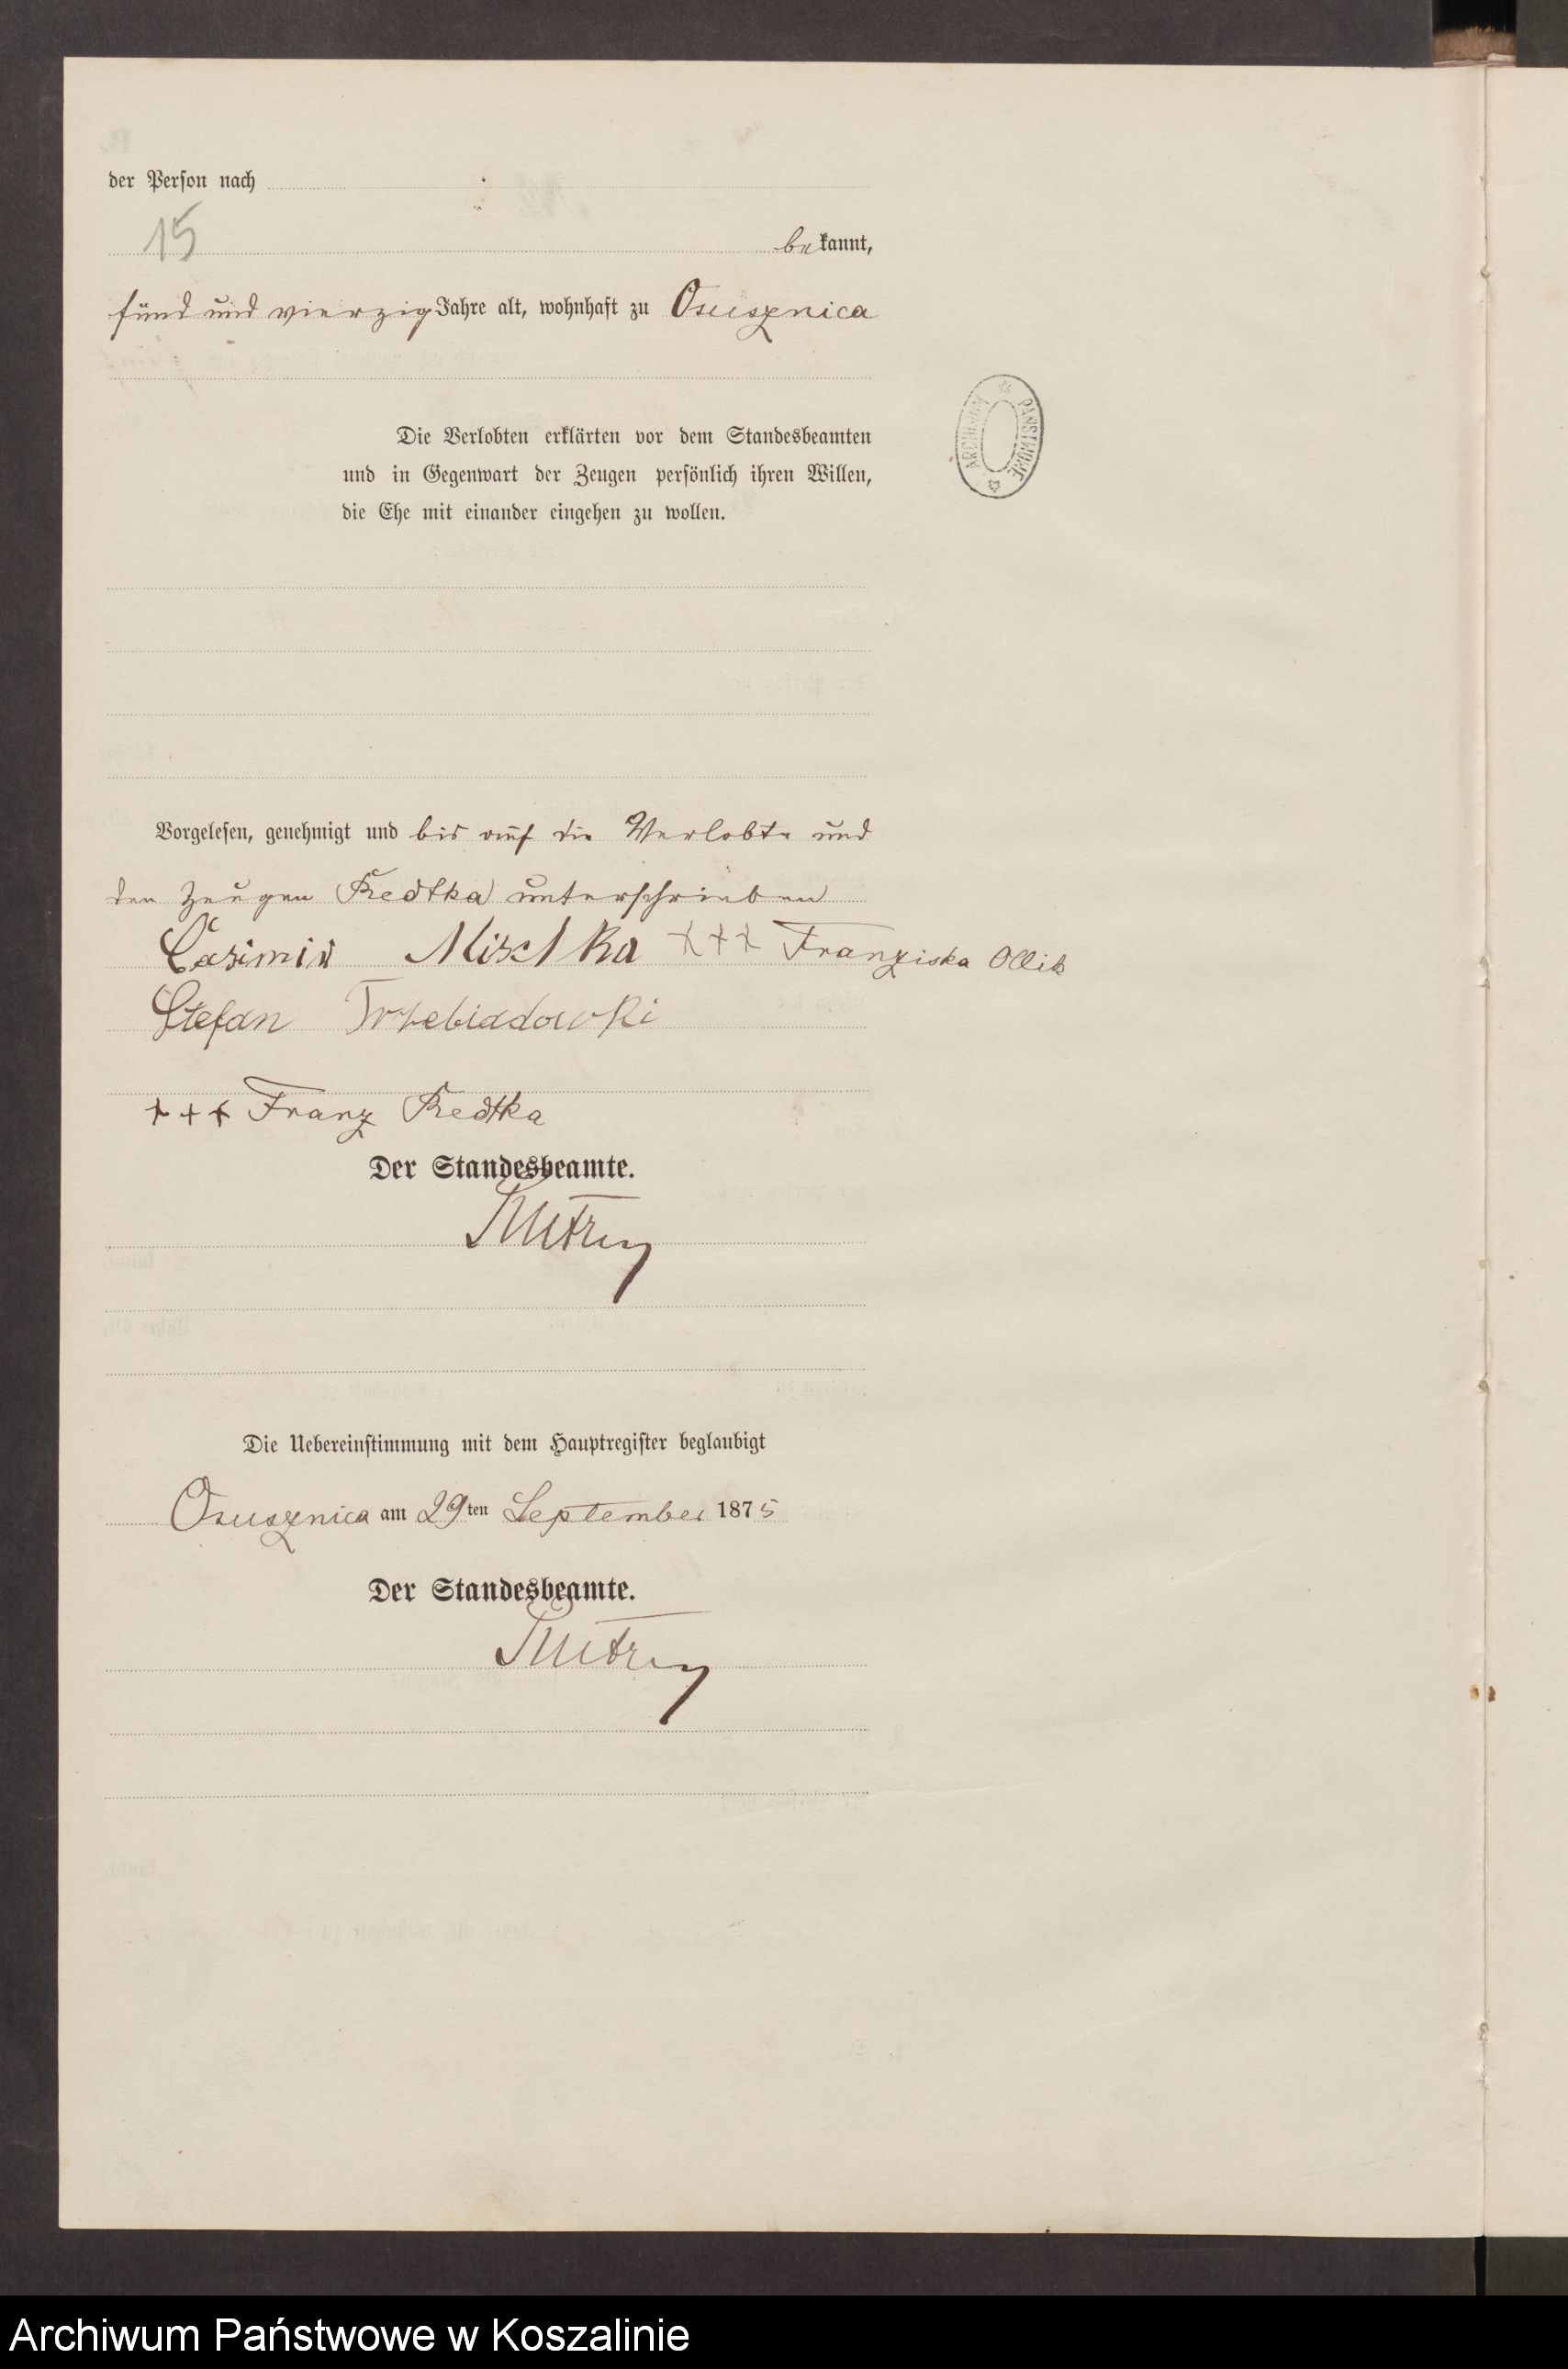 der Person nach
15
bekannt,
fünd und vierzig Jahre alt, wohnhaft zu Osusznica
ARCHIWUM PAŃSTWOWE
Die Verlobten erklärten vor dem Standesbeamten
und in Gegenwart der Zeugen persönlich ihren Willen,
die Ehe mit einander eingehen zu wollen.
Vorgelesen, genehmigt und bis auf die Verlobte und
den Zeugen Redtka unterschrieben
Casimir +++ Franziska Ollik
Stefan
+++ Franz Redtka
Der Standesbeamte.
Die Uebereinstimmung mit dem Hauptregister beglaubigt
Osusznica am 29ten September 1875
Der Standesbeamte.
Archiwum Państwowe w Koszalinie